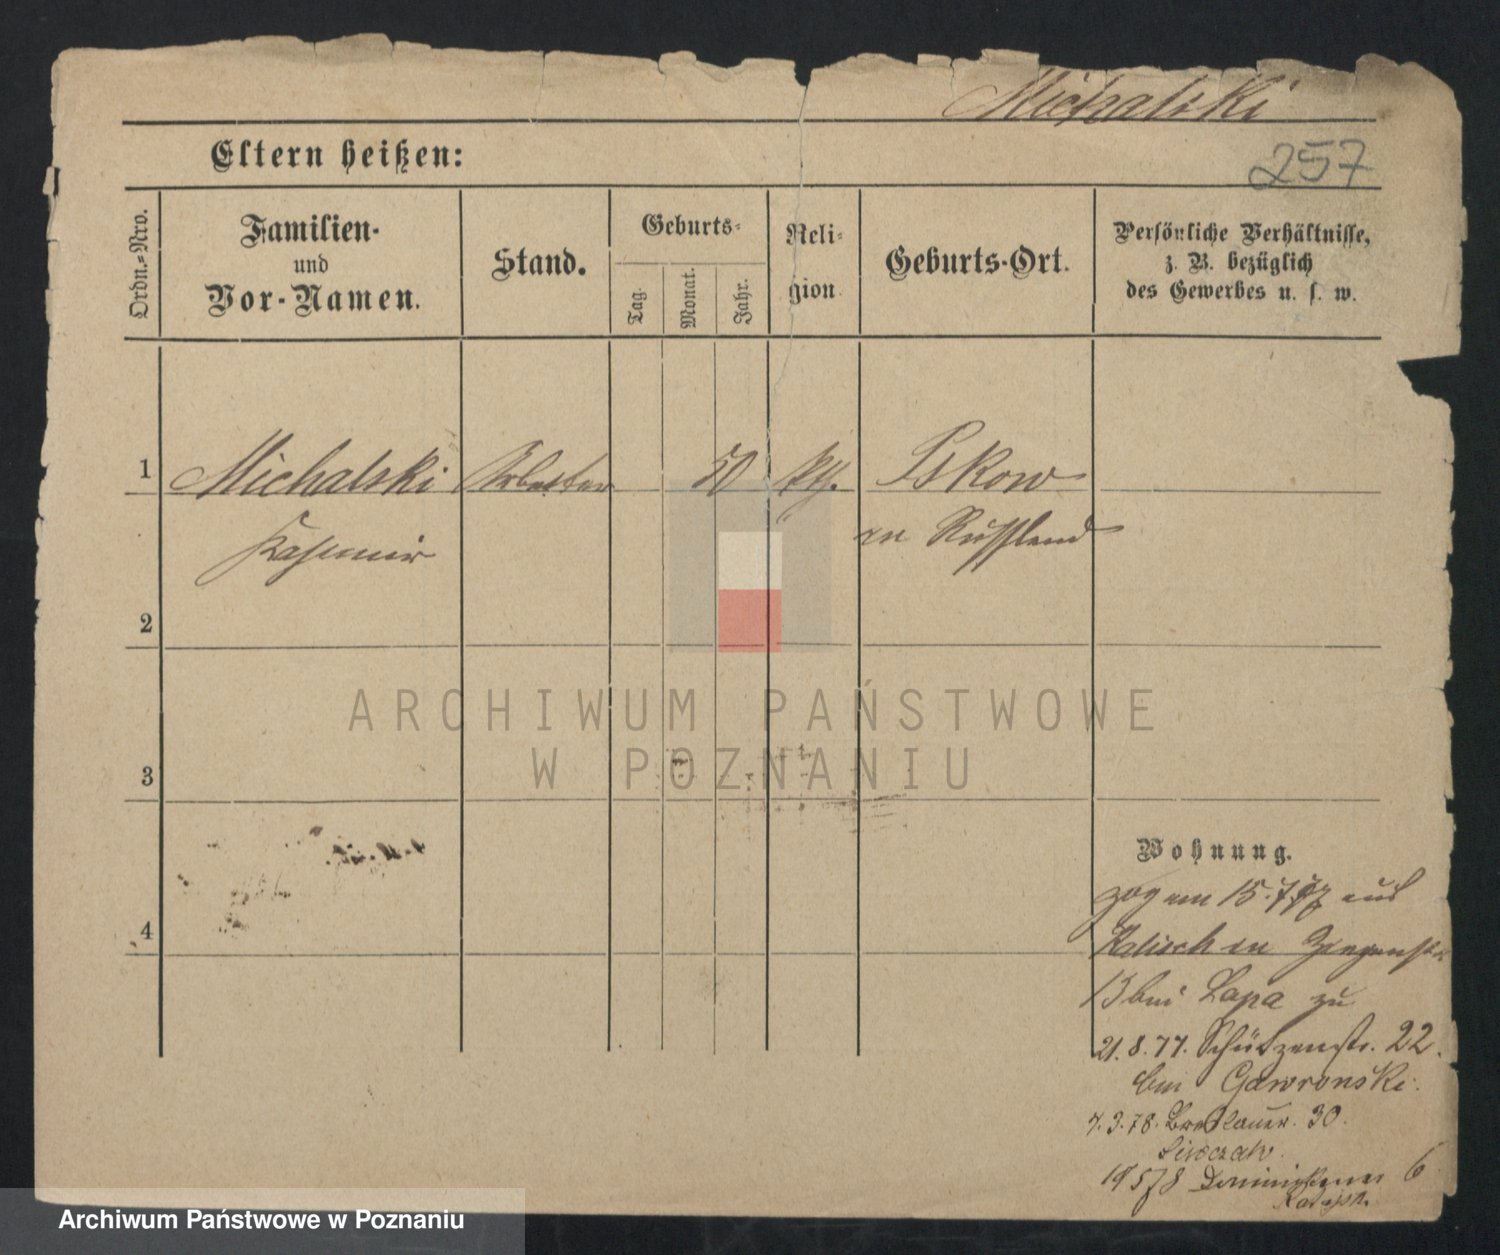 Michalski
257
Eltern heißen:
Ordn.-Nro.
Familien-
und
Vor-Namen.
Stand.
Geburts-
Tag.
Monat.
Jahr.
Reli-
gion
Geburts-Ort.
Persönliche Verhältnisse,
z. B. bezüglich
des Gewerbes u. s. w.
1
Michalski
Arbeiter
50
kth.
Pskow
Kasimir
in Russland
2
ARCHIWUM PAŃSTWOWE
W POZNANIU
3
4
Wohnung.
zog am 15.7.77 aus
Kalisch in Ziegenstr.
13 bei Lapa zu
21.8.77. Schützenstr. 22.
bei Gawronski.
7.3.78. Breslauer. 30.
19 5 78 Dominikaner 6
Archiwum Państwowe w Poznaniu